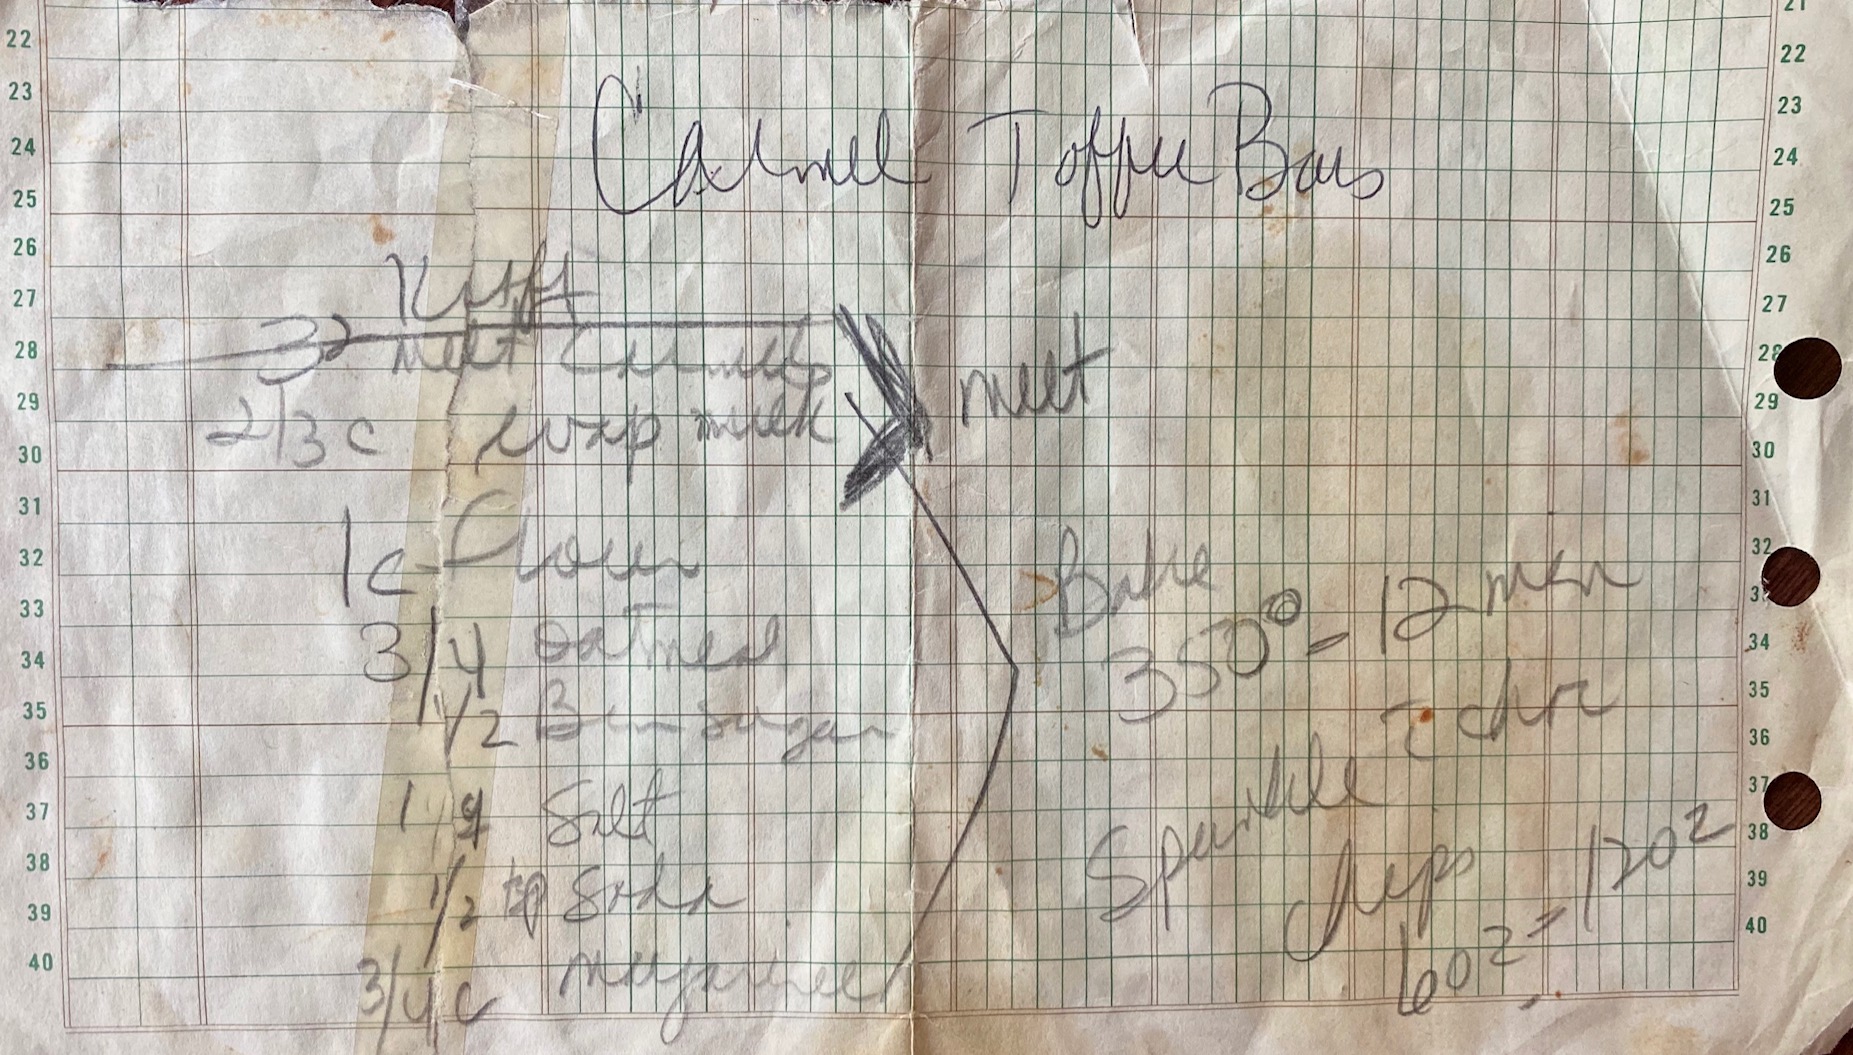 Carmel Toffee Bars
Kraft
32 melt Carmels
2/3 c evap milk
melt
1c flour
3/4 oatmeal
1/2 Brn sugar
1/4 Salt
1/2 tsp Soda
3/4 c margarine
Bake
350° - 12 min
Sprinkle c̄ choc
chips
6oz - 12oz
22
23
24
25
26
27
28
29
30
31
32
33
34
35
36
37
38
39
40
21
22
23
24
25
26
27
28
29
30
31
32
34
35
36
37
38
39
40